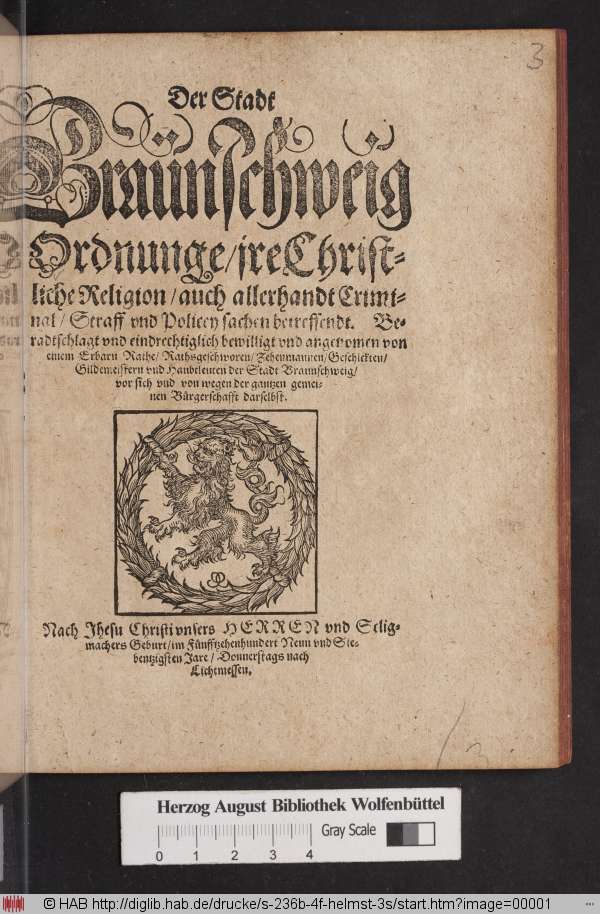 3
Der Stadt
Braunschweig
Ordnunge / jre Christ-
liche Religion / auch allerhandt Crimi-
nal / Straff vnd Policey sachen betreffendt. Be-
radtschlagt vnd eindrechtiglich bewilligt vnd angenomen von
einem Erbarn Rathe / Rathsgeschworen / Zehenmannen / Geschickten /
Gildemeistern vnd Haubtleuten der Stadt Braunschweig /
vor sich vnd von wegen der gantzen gemei-
nen Bürgerschafft darselbst.
Nach Jhesu Christi vnsers HERREN vnd Selig-
machers Geburt / im Fünfftzehenhundert Neun vnd Sie-
bentzigsten Jare / Donnerstags nach
Lichtmessen.
Herzog August Bibliothek Wolfenbüttel
0 1 2 3 4 Gray Scale
© HAB http://diglib.hab.de/drucke/s-236b-4f-helmst-3s/start.htm?image=00001